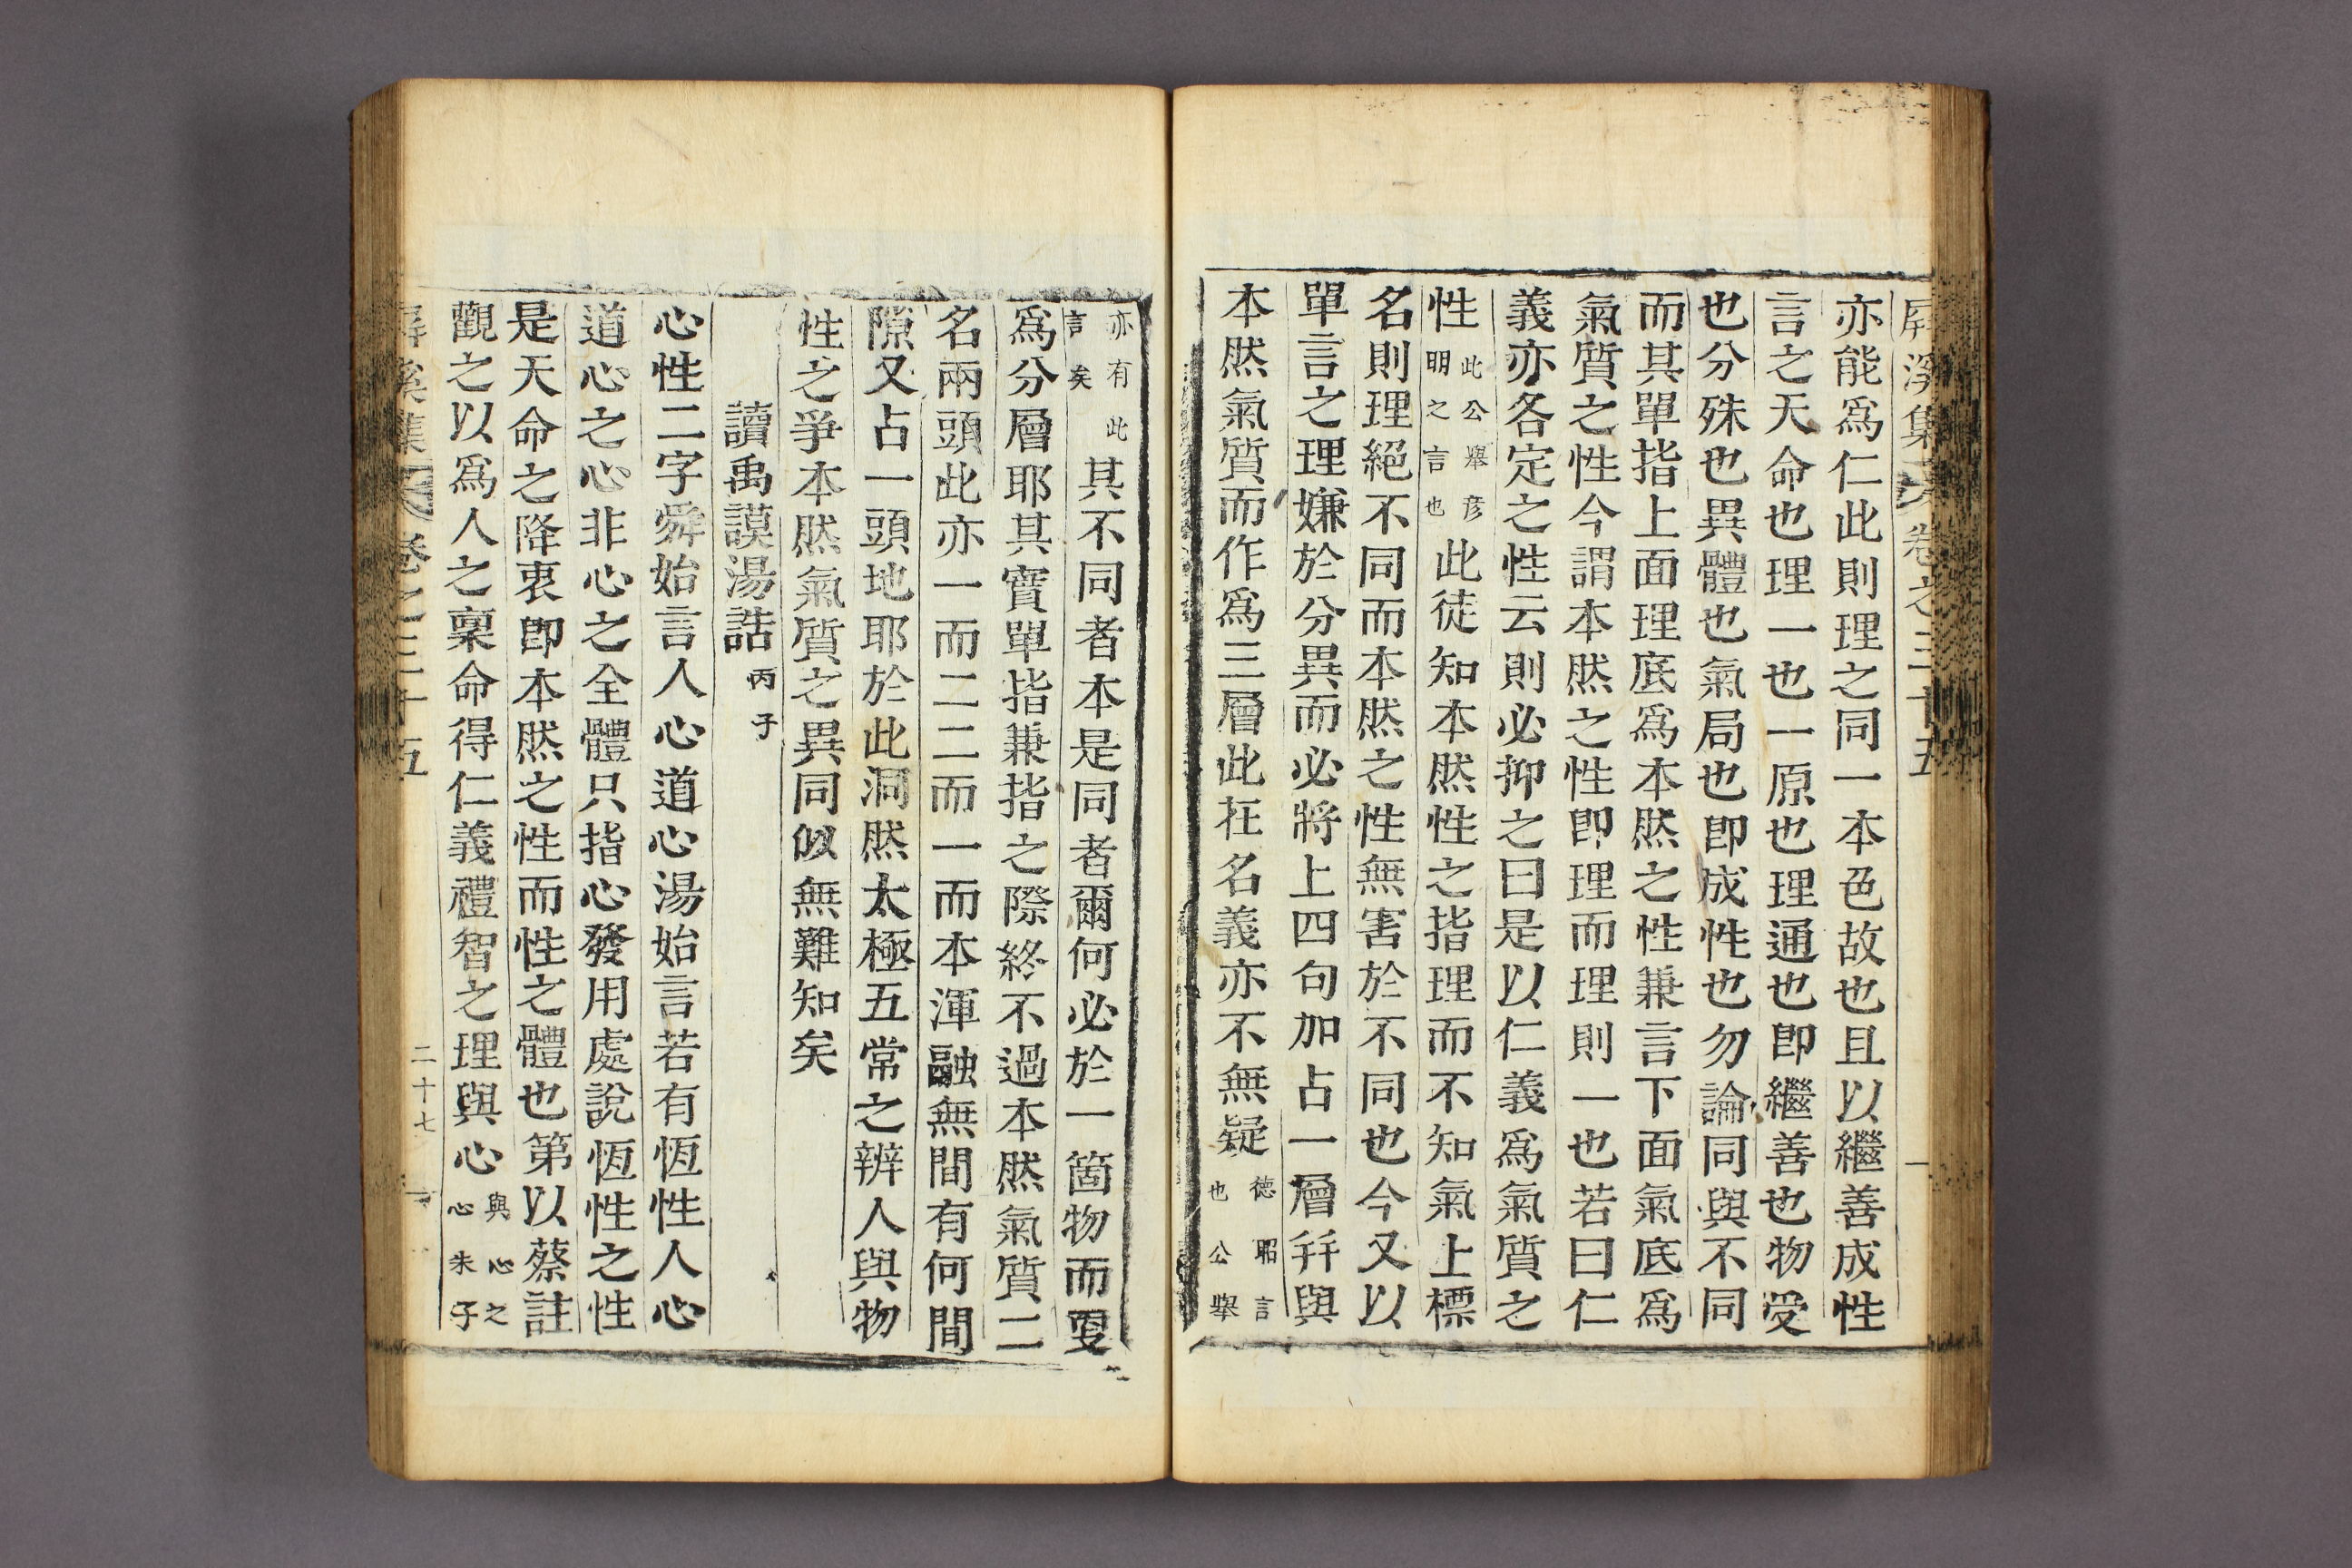 屛溪集 卷之三十五
亦能爲仁此則理之同一本色故也且以繼善成性
言之天命也理一也一原也理通也卽繼善也物受
也分殊也異體也氣局也卽成性也勿論同與不同
而其單指上面理底爲本然之性兼言下面氣底爲
氣質之性今謂本然之性卽理而理則一也若曰仁
義亦各定之性云則必抑之曰是以仁義爲氣質之
性此公擧彦明之言也此徒知本然性之指理而不知氣上標
名則理絕不同而本然之性無害於不同也今又以
單言之理嫌於分異而必將上四句加占一層幷與
本然氣質而作爲三層此在名義亦不無疑德昭言也公擧
亦有此言矣其不同者本是同者爾何必於一箇物而更
爲分層耶其實單指兼指之際終不過本然氣質二
名兩頭此亦一而二二而一而本渾融無間有何間
隙又占一頭地耶於此洞然太極五常之辨人與物
性之爭本然氣質之異同似無難知矣
讀禹謨湯誥丙子
心性二字舜始言人心道心湯始言若有恆性人心
道心之心非心之全體只指心發用處說恆性之性
是天命之降衷卽本然之性而性之體也第以蔡註
觀之以爲人之稟命得仁義禮智之理與心與心之心朱子
屛溪集 卷之三十五 二十七